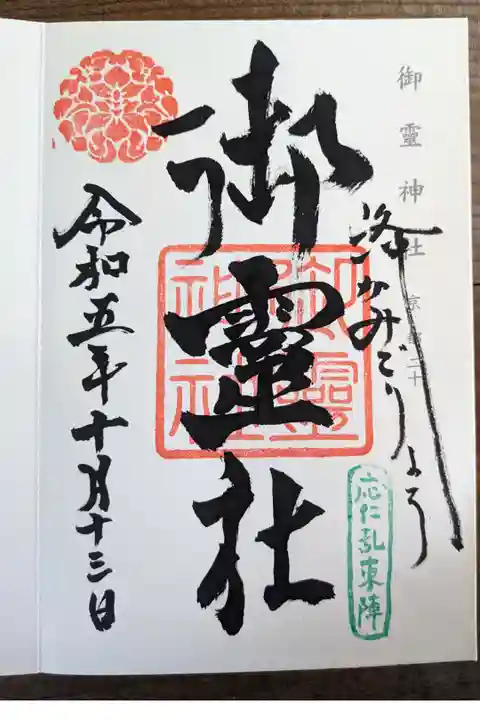 御靈神社 京都二十
洛かみごりょう
応仁乱東陣
御靈社
御靈神社
令和五年十月十三日